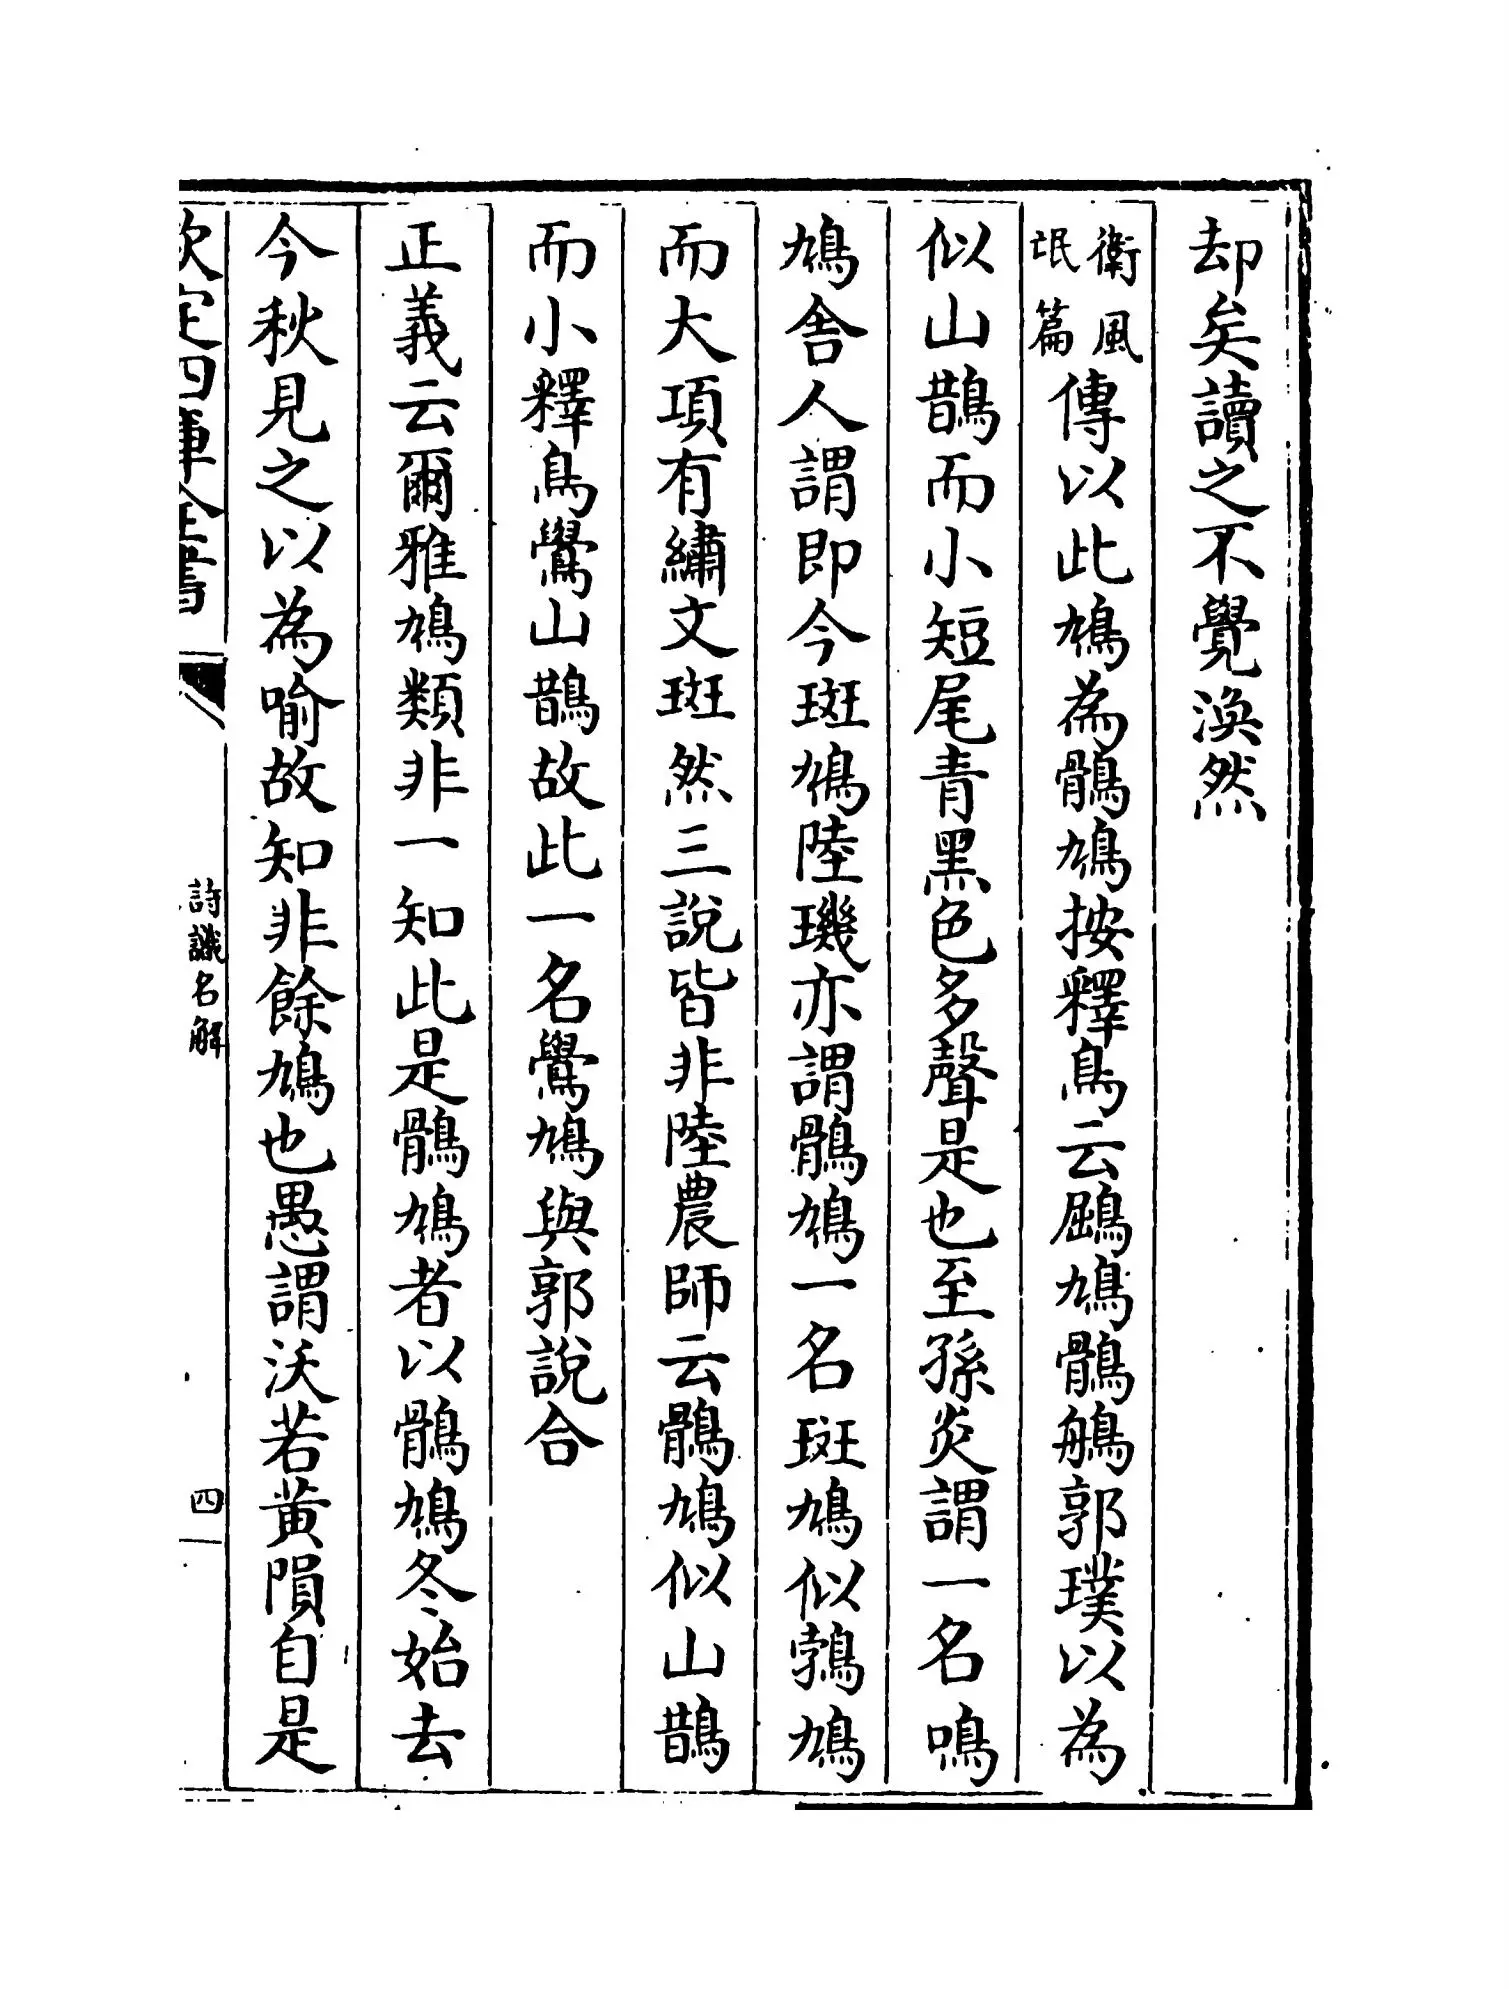 却矣讀之不覺渙然
衛風
氓篇
傳以此鳩為鶻鳩按釋鳥云鶌鳩鶻鵃郭璞以為
似山鵲而小短尾青黑色多聲是也至孫炎謂一名鳴
鳩舎人謂即今斑鳩陸璣亦謂鶻鳩一名斑鳩似鵓鳩
而大項有繡文斑然三說皆非陸農師云鶻鳩似山鵲
而小釋鳥鷽山鵲故此一名鷽鳩與郭說合
正義云爾雅鳩類非一知此是鶻鳩者以鶻鳩冬始去
今秋見之以為喻故知非餘鳩也愚謂沃若黄隕自是
欽定四庫全書
詩識名解
四